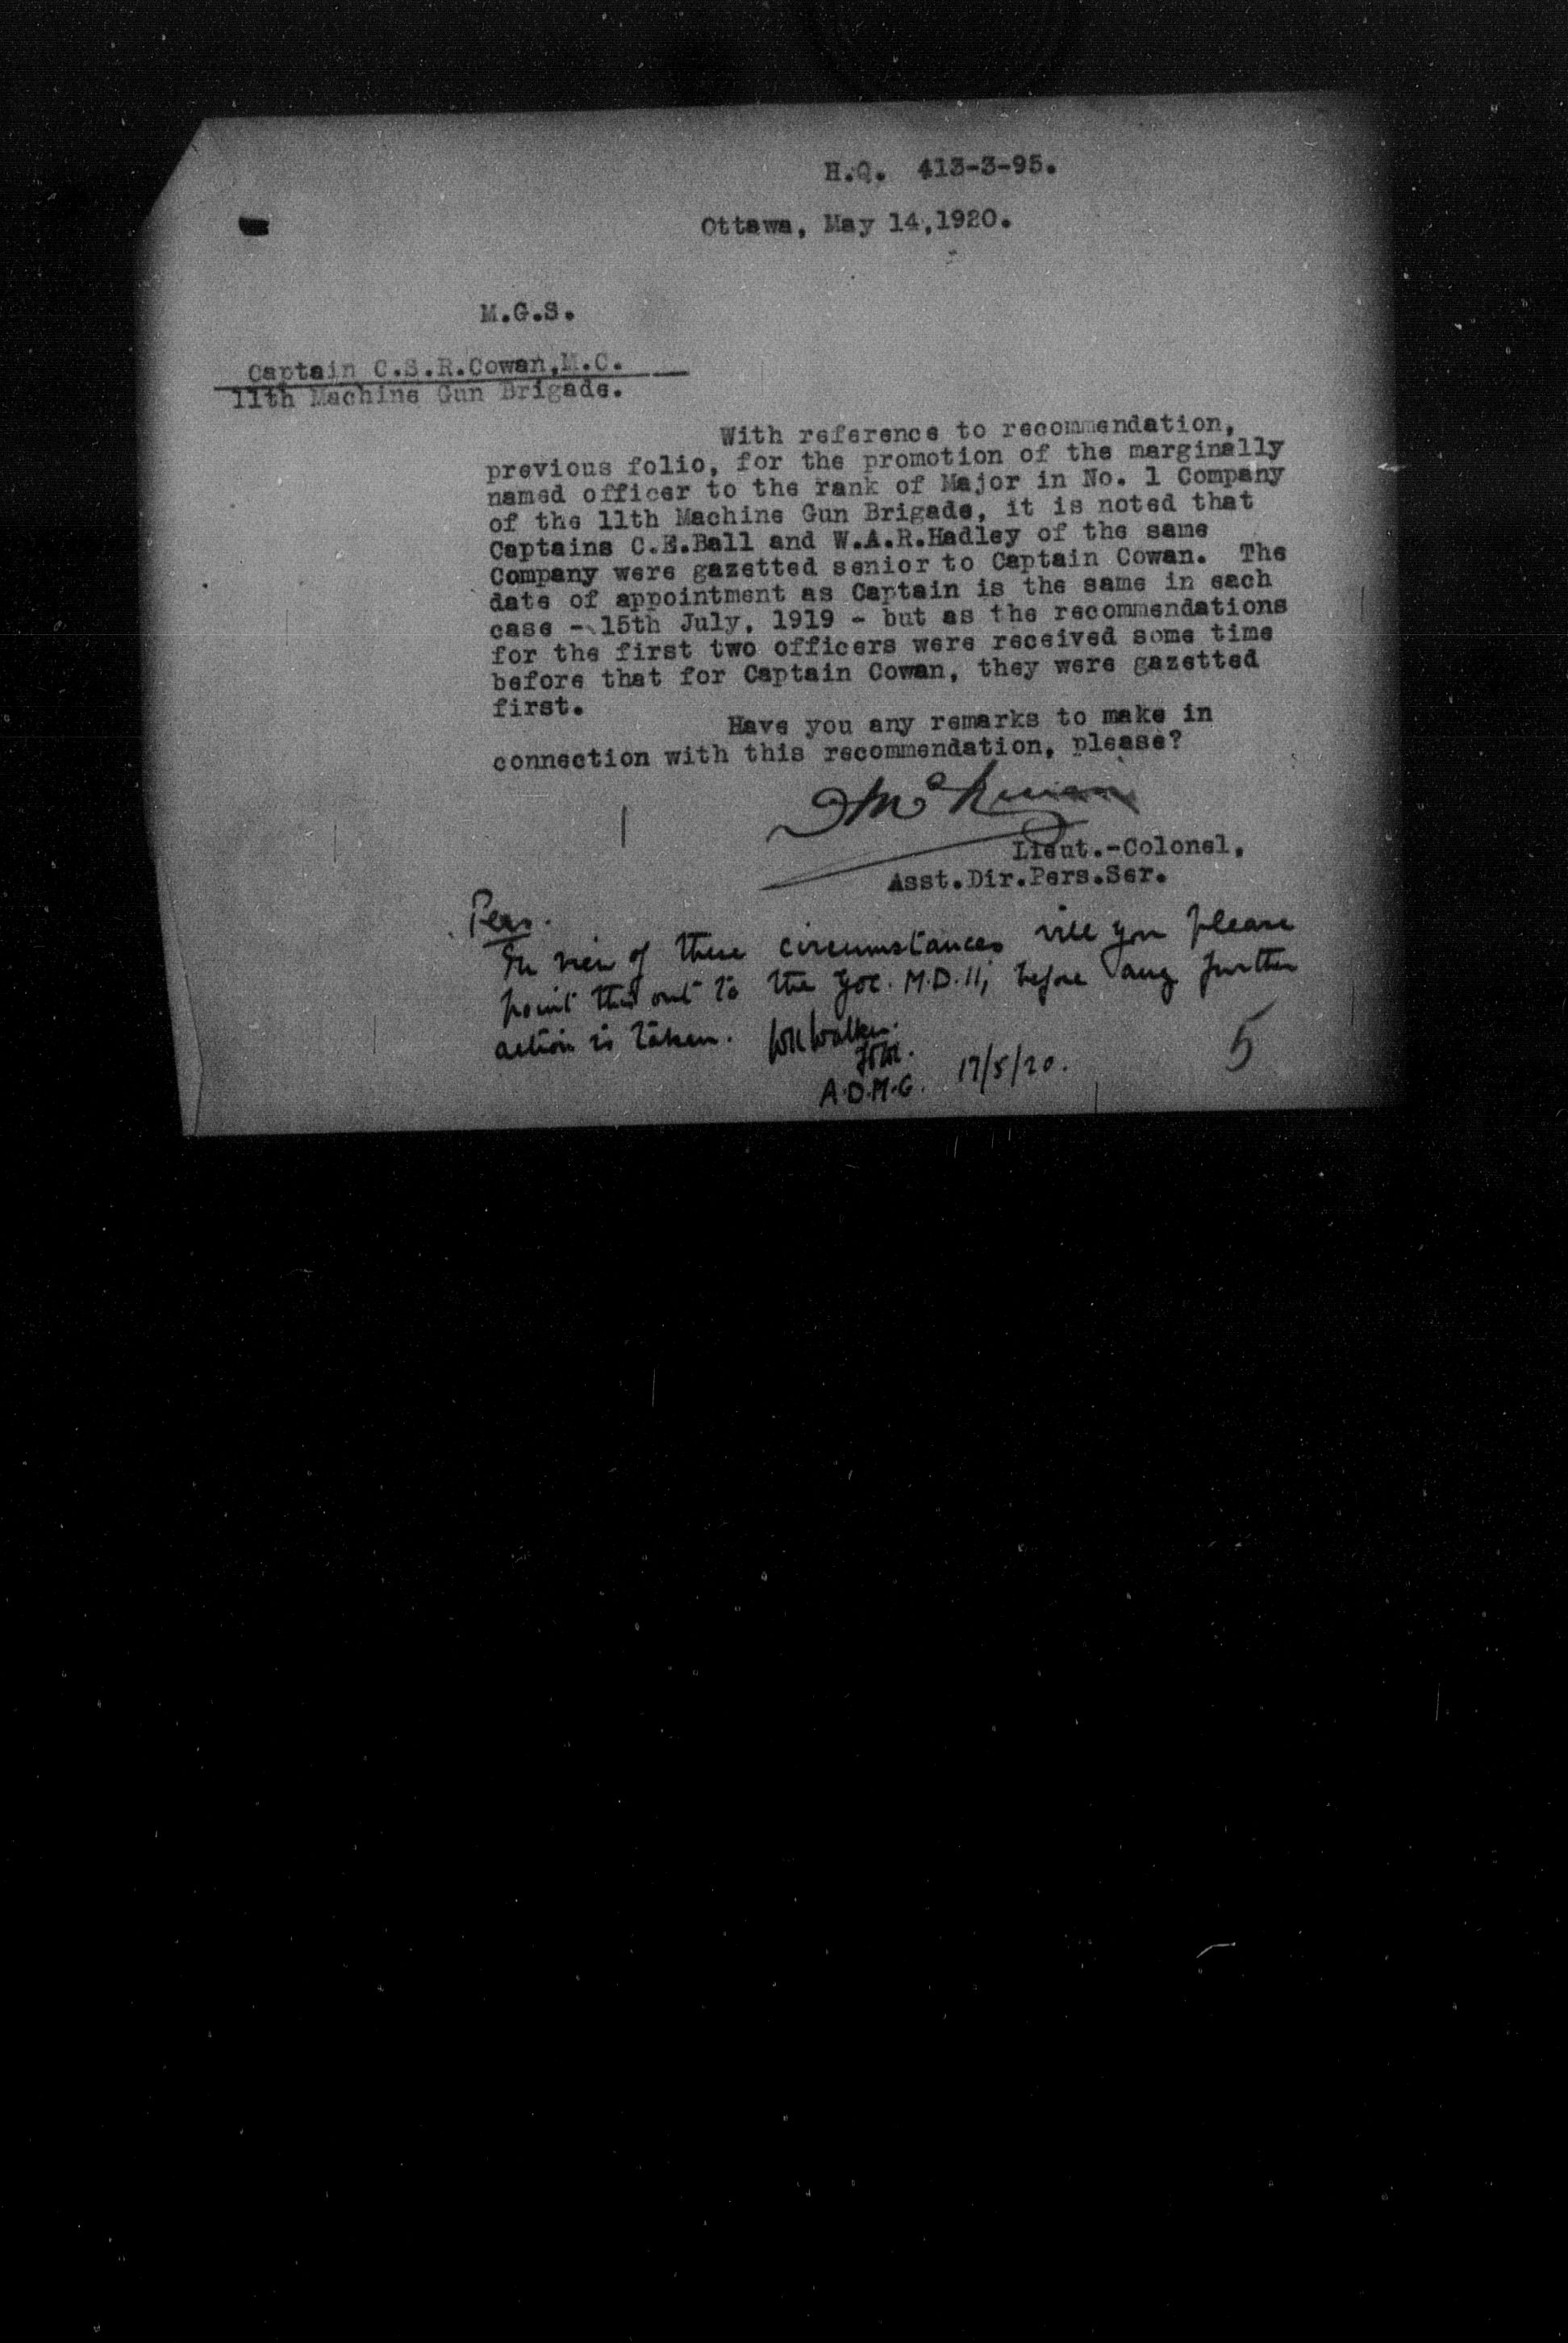 H.Q. 413-3-95.
Ottawa, May 14,1920.
M.G.S.
Captain C.S.R.Cowan,M.C.
11th Machine Gun Brigade.
With reference to recommendation,
previous folio, for the promotion of the marginally
named officer to the rank of Major in No. 1 Company
of the 11th Machine Gun Brigade, it is noted that
Captains C.E.Ball and W.A.R.Hadley of the same
Company were gazetted senior to Captain Cowan. The
date of appointment as Captain is the same in each
case - 15th July, 1919 - but as the recommendations
for the first two officers were received some time
before that for Captain Cowan, they were gazetted
first.
Have you any remarks to make in
connection with this recommendation, please?
Lieut.-Colonel,
Asst.Dir.Pers.Ser.
Pers.
In view of these circumstances will you please
point this out to the Goc. M.D. 11, before any further
action is taken.
A.D.M.G. 17/5/20.
5